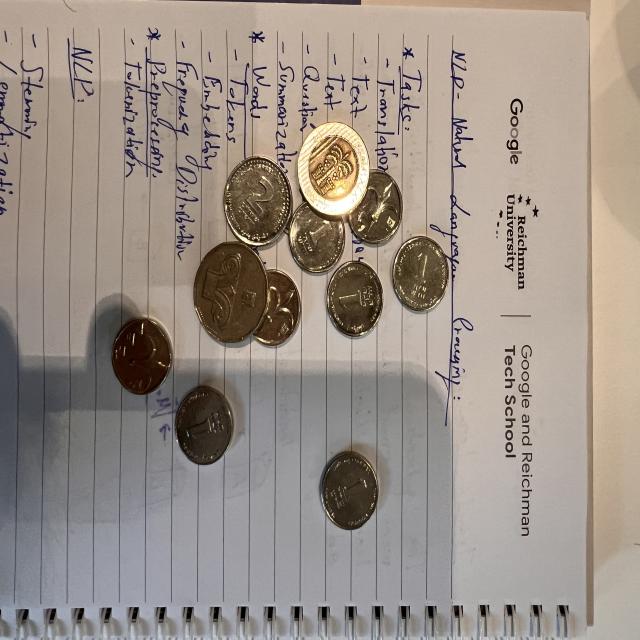 Google
Reichman
University
Google and Reichman
Tech School
NLP - Natural Language Processing:
* Tasks:
- Translation
- Text
- Text
- Question
- Summarization
* Words
- Tokens
- Embedding
- Frequency Distribution
* Preprocessing
- Tokenization
NLP:
- Steming
- Lemmatization